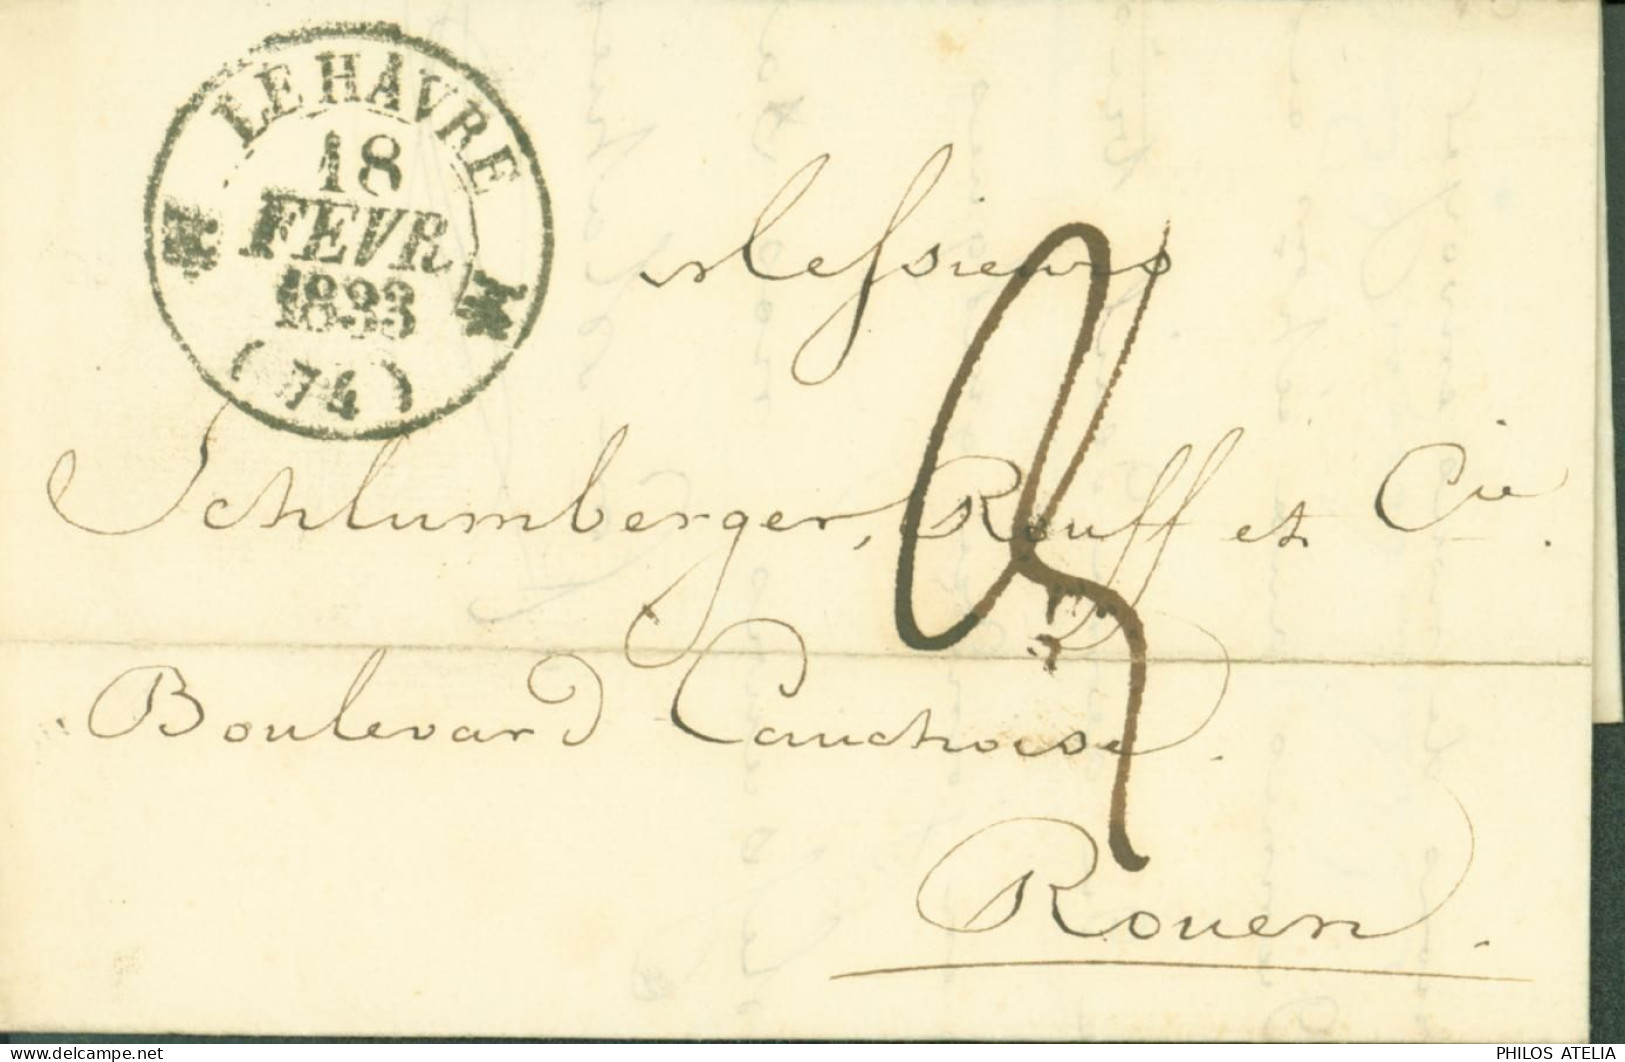 LE HAVRE
18
FEVR
1833
(74)
Messieurs
Schlumberger, Rouff et Cie.
Boulevard Cauchoise.
Rouen.
delcampe.net
PHILOS ATELIA